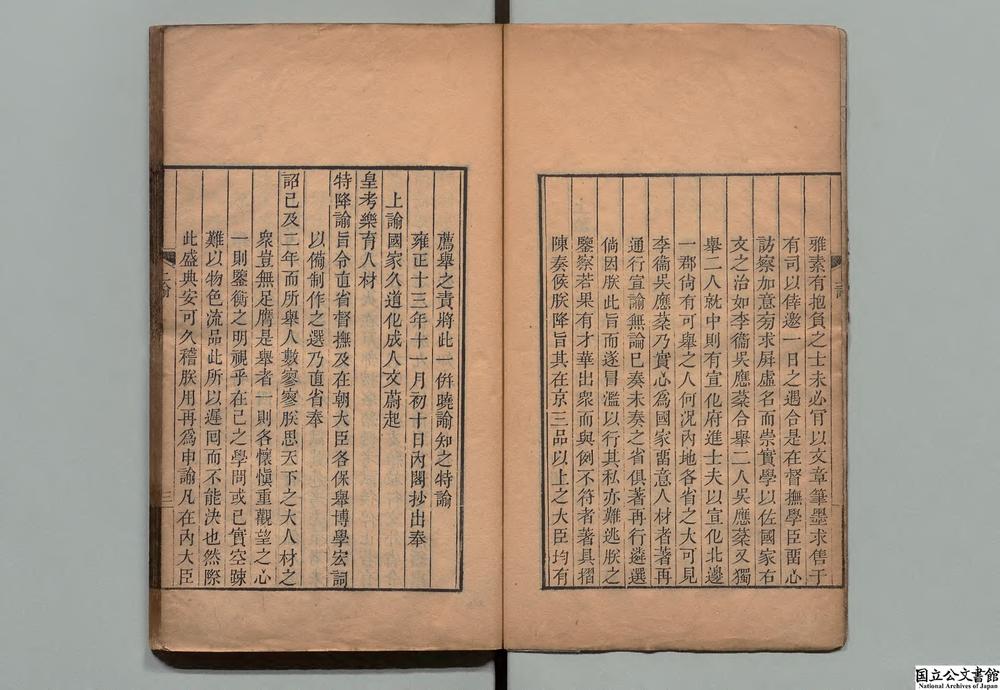 雅素有抱負之士未必肎以文章筆墨求售于
有司以倖邀一日之遇合是在督撫學臣畱心
訪察加意旁求屏虛名而崇實學以佐國家右
文之治如李衞吳應棻合舉二人吳應棻又獨
舉二人就中則有宣化府進士夫以宣化北邊
一郡尙有可舉之人何況內地各省之大可見
李衞吳應棻乃實心爲國家畱意人材者著再
通行宣諭無論已奏未奏之省俱著再行遴選
倘因朕此旨而遂冒濫以行其私亦難逃朕之
鑒察若果有才華出衆而與例不符者著具摺
陳奏候朕降旨其在京三品以上之大臣均有
薦舉之責將此一倂曉諭知之特諭
雍正十三年十一月初十日內閣抄出奉
上諭國家久道化成人文蔚起
皇考樂育人材
特降諭旨令直省督撫及在朝大臣各保舉博學宏詞
以備制作之選乃直省奉
詔已及二年而所舉人數寥寥朕思天下之大人材之
衆豈無足膺是舉者一則各懷愼重觀望之心
一則鑒衡之明視乎在己之學問或己實空踈
難以物色流品此所以遲囘而不能決也然際
此盛典安可久稽朕用再爲申諭凡在內大臣
上諭
三
国立公文書館
National Archives of Japan